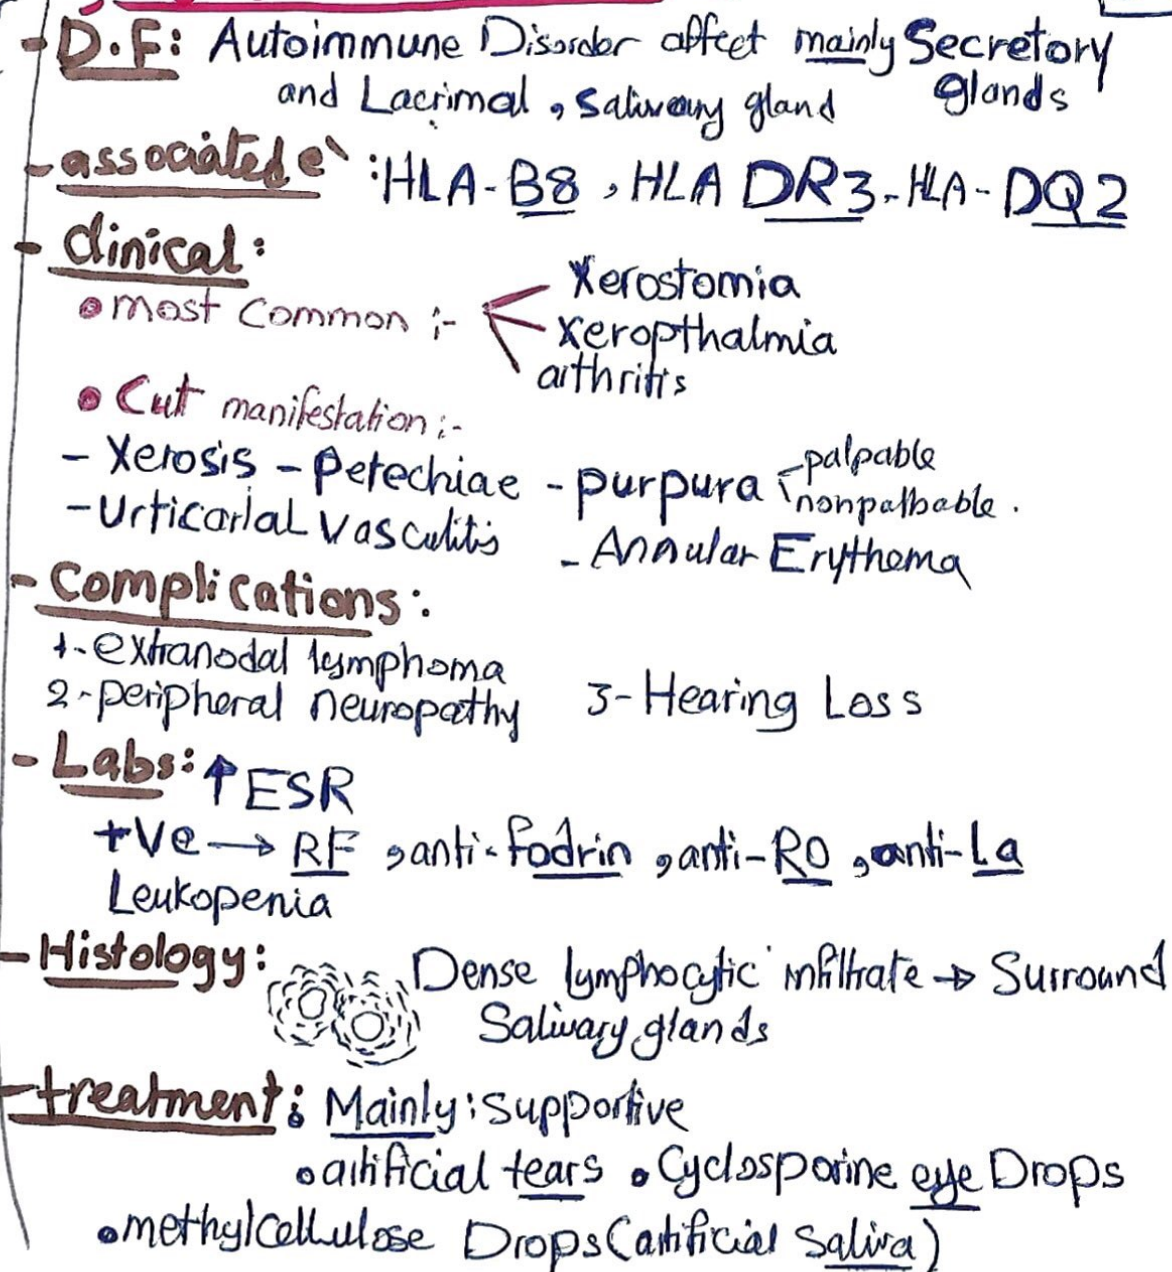 - D.F: Autoimmune Disorder affect mainly Secretory glands
and Lacrimal , Salivary gland
- associated e` : HLA-B8 , HLA DR3 - HLA-DQ2
- Clinical:
• most Common :-
Xerostomia
Xeropthalmia
arthritis
• Cut manifestation :-
- Xerosis - Petechiae - purpura
palpable
nonpalbable .
- Urticarial Vasculitis - Annular Erythema
- Complications:
1- extranodal lymphoma
2- peripheral neuropathy 3- Hearing Loss
- Labs: ↑ ESR
+ve → RF , anti-fodrin , anti-RO , anti-La
Leukopenia
- Histology: Dense lymphocytic infiltrate → Surround
Salivary glands
- treatment: Mainly: supportive
• artificial tears • Cyclosporine eye Drops
• methylcellulose Drops (artificial Saliva)